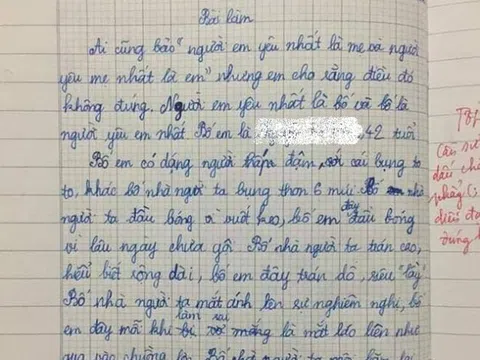 Bài làm
Ai cũng bảo "người em yêu nhất là mẹ và người
yêu mẹ nhất là em" nhưng em cho rằng điều đó
không đúng. Người em yêu nhất là bố và bố là
người yêu em nhất. Bố em là , 42 tuổi
Bố em có dáng người đậm, với cái bụng to
to, khác bố nhà người ta bụng thon 6 múi. Bố nhà
người ta đầu bóng vì vuốt keo, bố em đây đầu bóng
vì lâu ngày chưa gội. Bố nhà người ta trán cao,
hiểu biết rộng dài, bố em đây trán dô, siêu "lầy"
Bố nhà người ta mắt ánh lên sự nghiêm nghị, bố
em đây mỗi khi làm sai là mắt láo liên như
Câu
dấu
phẩy (,